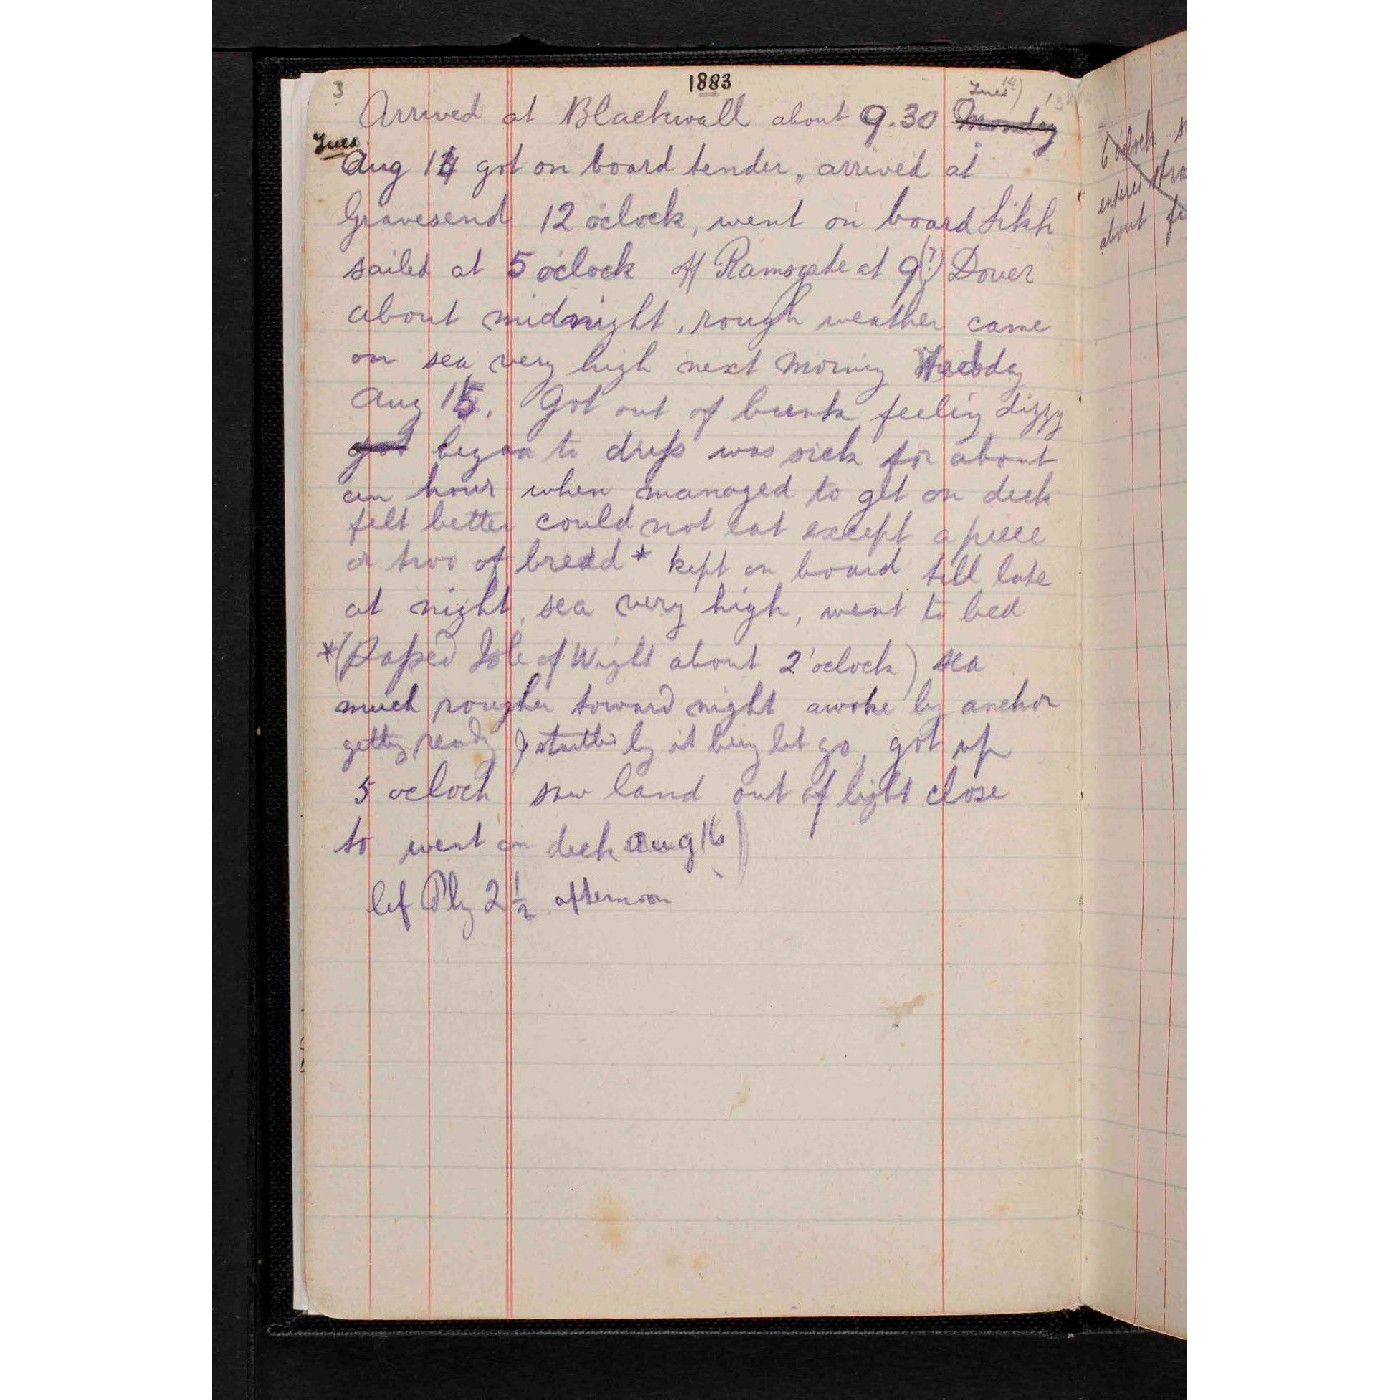 3
1883
Tues 14)
Arrived at Blackwall about 9.30 Monday
Tues
Aug 14 got on board tender, arrived at
Gravesend 12 o'clock, went on board Sikh
sailed at 5 o'clock off Ramsgate at 9(?) Dover
about midnight, rough weather came
on sea very high next morning
Aug 15. Got out of bunk feeling dizzy
got began to dress was sick for about
an hour when managed to get on deck
felt better could not eat except a piece
or two of bread * kept on board till late
at night, sea very high, went to bed
*(Passed Isle of Wight about 2 'oclock) sea
much rougher toward night awoke by anchor
getting ready & startled by it being let go, got up
5 oclock saw land out of light close
to went on deck Aug 16)
lef Ply 2 1/2 afternoon
6 oclock
entered
about